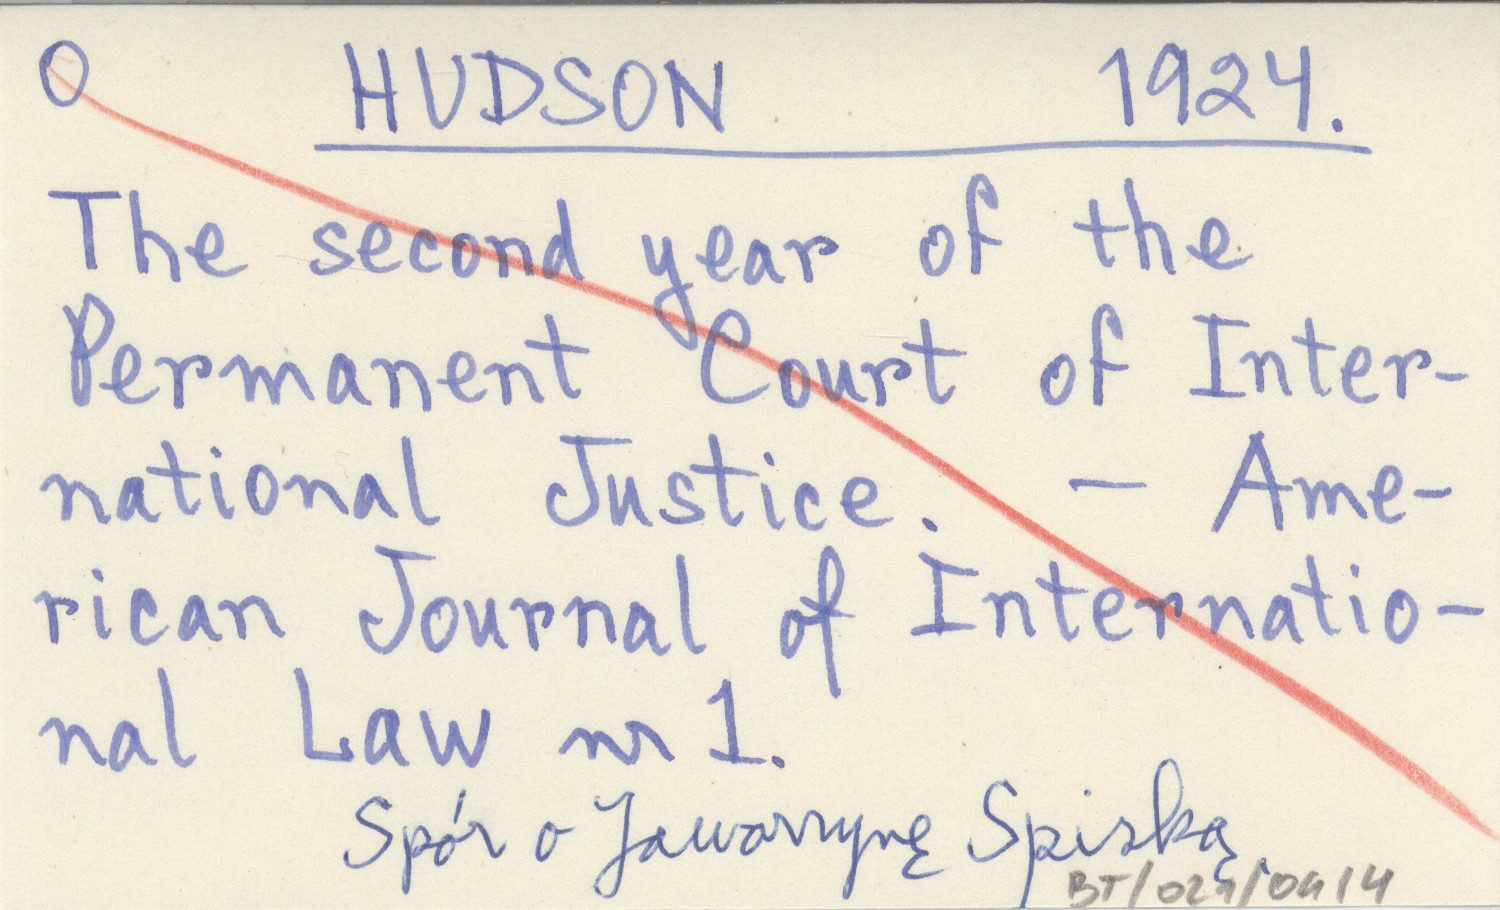 O HUDSON 1924.
The second year of the
Permanent Court of Inter-
national Justice. - Ame-
rican Journal of Internatio-
nal Law nr 1.
Spór o Jaworzynę Spiską.